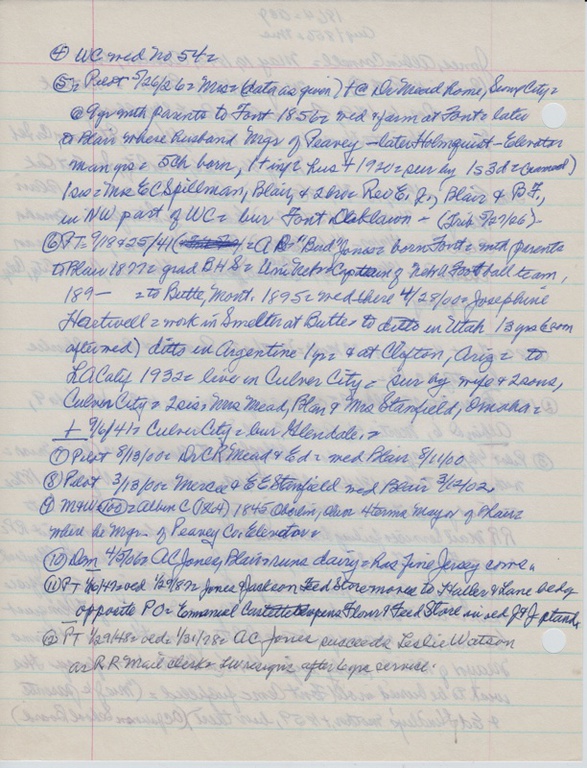 ④ WC wed No. 54=
⑤= Pilot 5/26/26= Mrs= (data as given) t@ Dr Mead Home, Sioux City=
@ 9 yr with parents to Font 1856= wed & farm at Font= later
to Blair where husband Mgr= of Peavey - later Holmquist - Elevator
man yrs= 5th born, 1 + inf= hus + 1920= sur by 1 s 3 d=
1 sis= Mrs E C Spillman, Blair, & 2 bro= Rev E. J., Blair & B F.,
in NW part of WC= bur Font Oaklawn - (Trib 5/27/26)-
⑥ PT= 9/18 & 25/41 = A D= "Bud" Jones= born Font= with parents
to Blair 1877= grad B H S= Uni Neb= Captain of Neb U Football team,
189- = to Butte, Mont. 1895= wed there 4/28/00= Josephine
Hartwell= work in Smelter at Butte= to ditto in Utah 13 yrs (soon
after wed) ditto in Argentine 1 yr= & at Clayton, Ariz= to
LA Calif 1932= live in Culver City= sur by wife & 2 sons,
Culver City= 2 sis= Mrs Mead, Blair & Mrs Stanfield, Omaha=
+ 9/6/41= Culver City= bur Glendale.=
⑦ Pilot 8/13/00= Dr C R Mead & Ed= wed Blair 8/11/00
⑧ Pilot 3/13/02= Mercie & E E Stanfield wed Blair 3/12/02,
⑨ M& W (100)= Albin C (1864) 1845 Oberlin, Ohio= 4 terms Mayor of Blair=
where he Mgr= of Peavey Co= Elevator=
⑩ Dem 4/5/06= A C Jones, Blair= runs dairy= has fine Jersey cows.
⑪ PT 1/6/47= ved 1/29/87= Jones & Jackson Feed Store moves to Haller & Lane bldg
opposite PO= Emmanuel opens Flour & Feed Store in ved J & J stand=
⑫ PT 1/29/48= ved= 1/31/78= A C Jones succeeds Leslie Watson
as R R Mail clerk= Lw resigns after 6 yrs service.